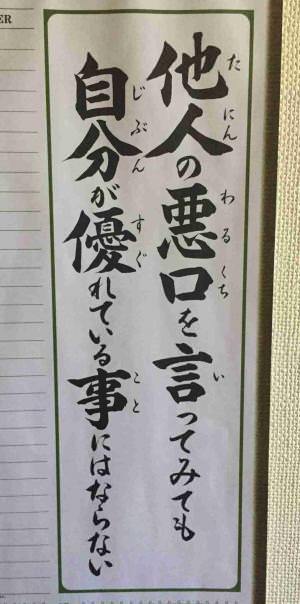 他人の悪口を言ってみても
自分が優れている事にはならない
たにん わるくち い
じぶん すぐ こと
ER